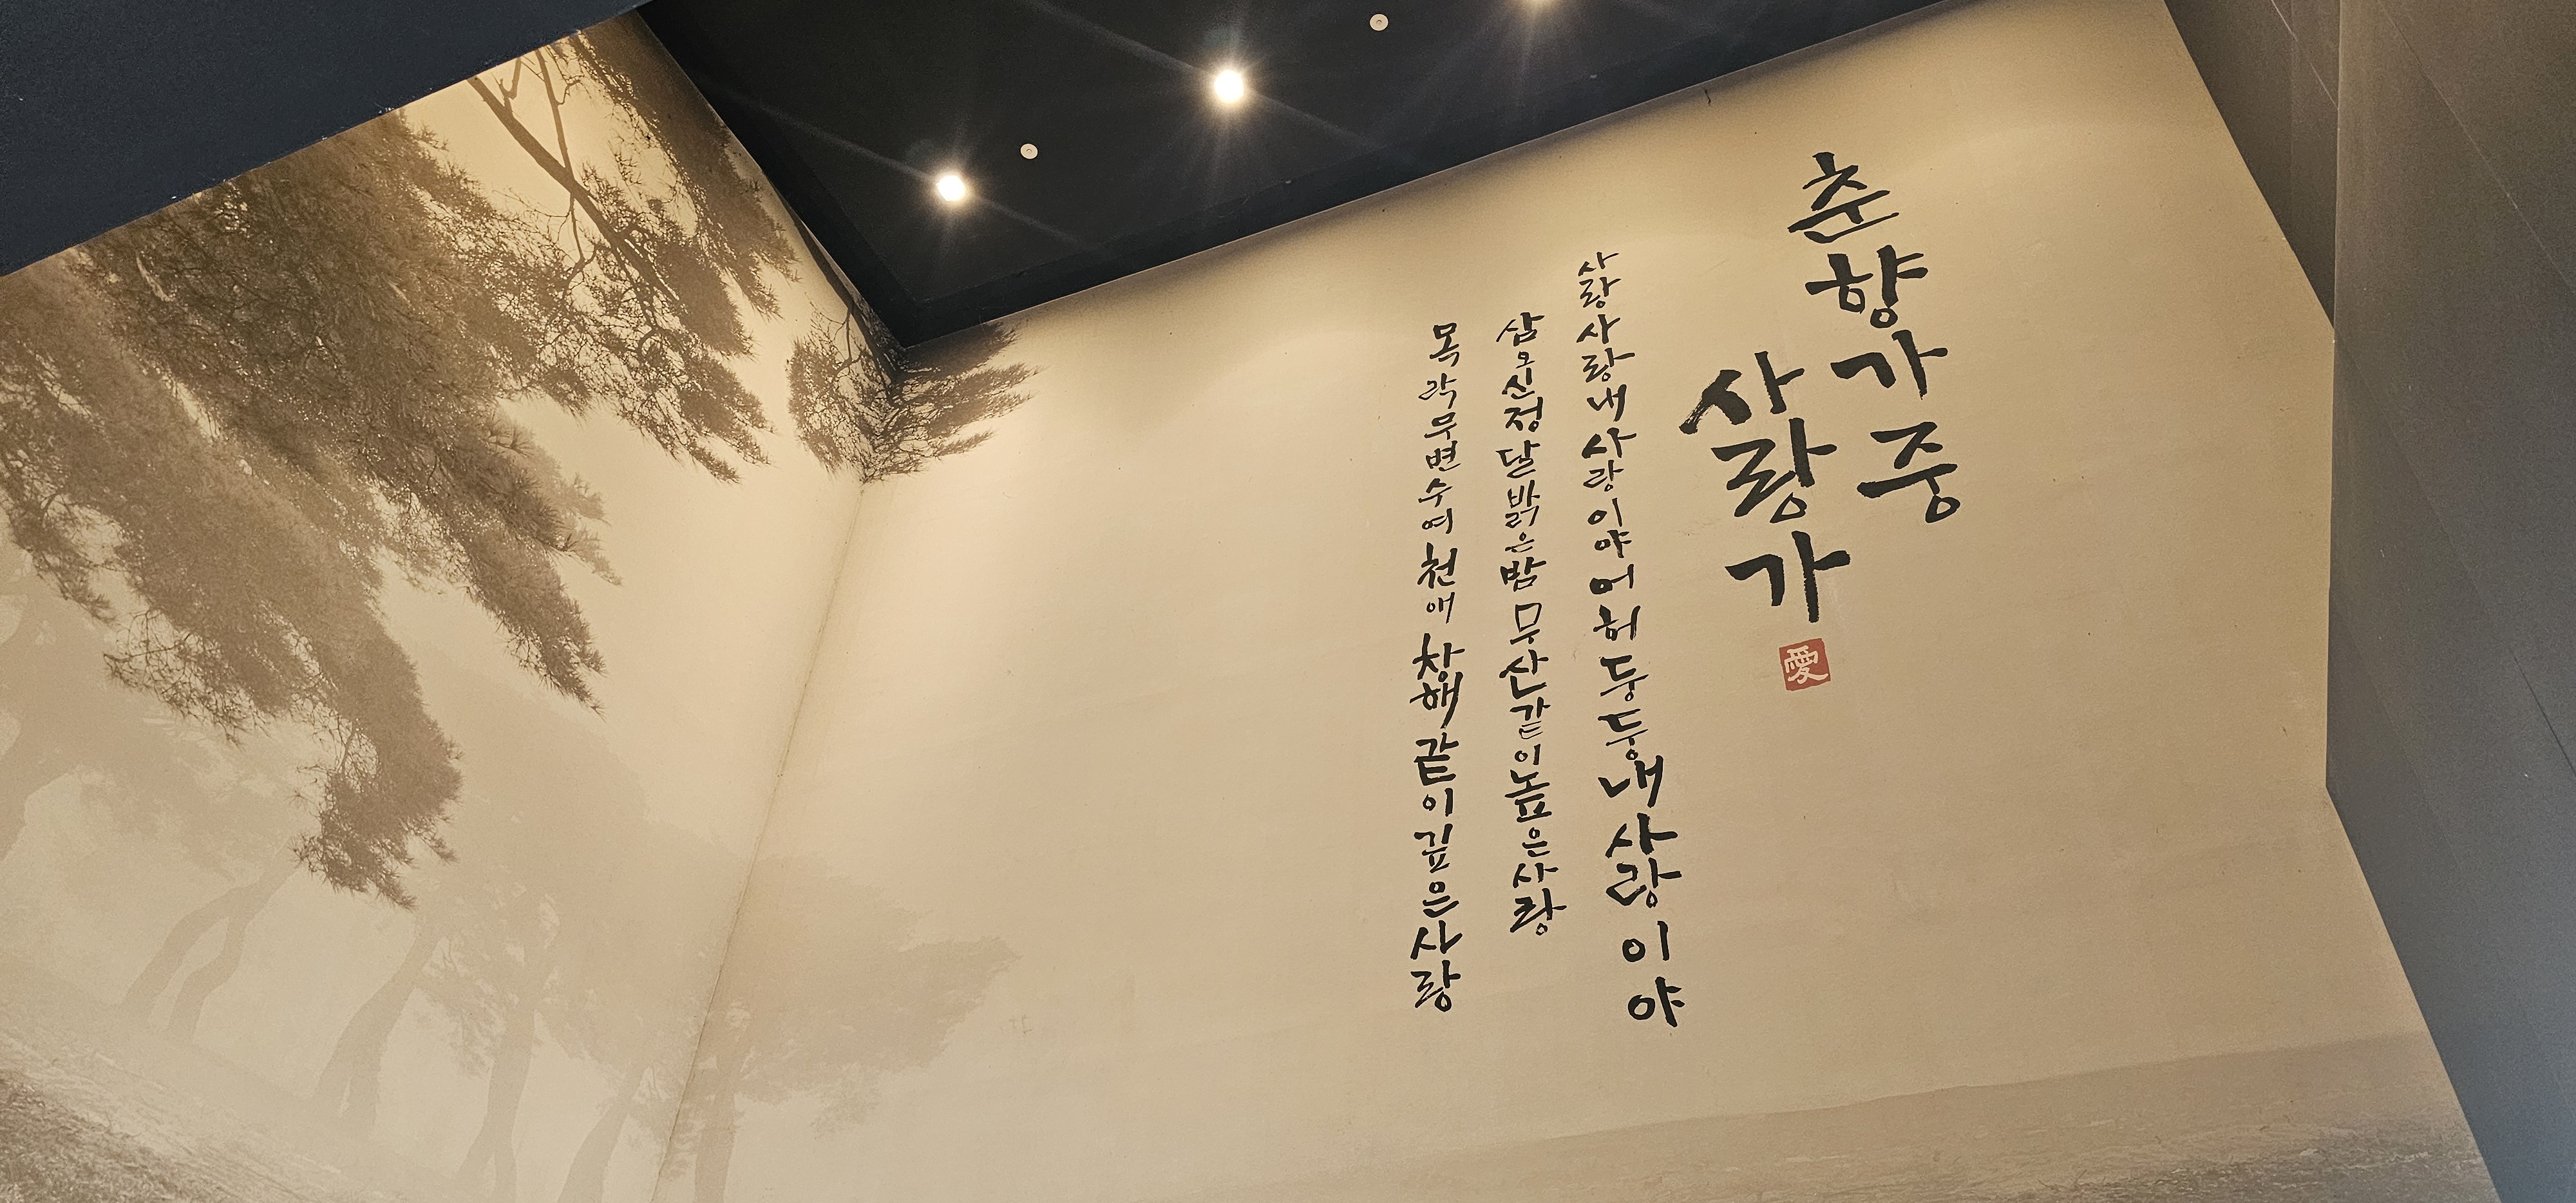 춘향가중
사랑가
愛
사랑사랑내사랑이야어허둥둥내사랑이야
삼오신정달밝은밤무산같이높은사랑
목락무변수여천애창해같이깊은사랑